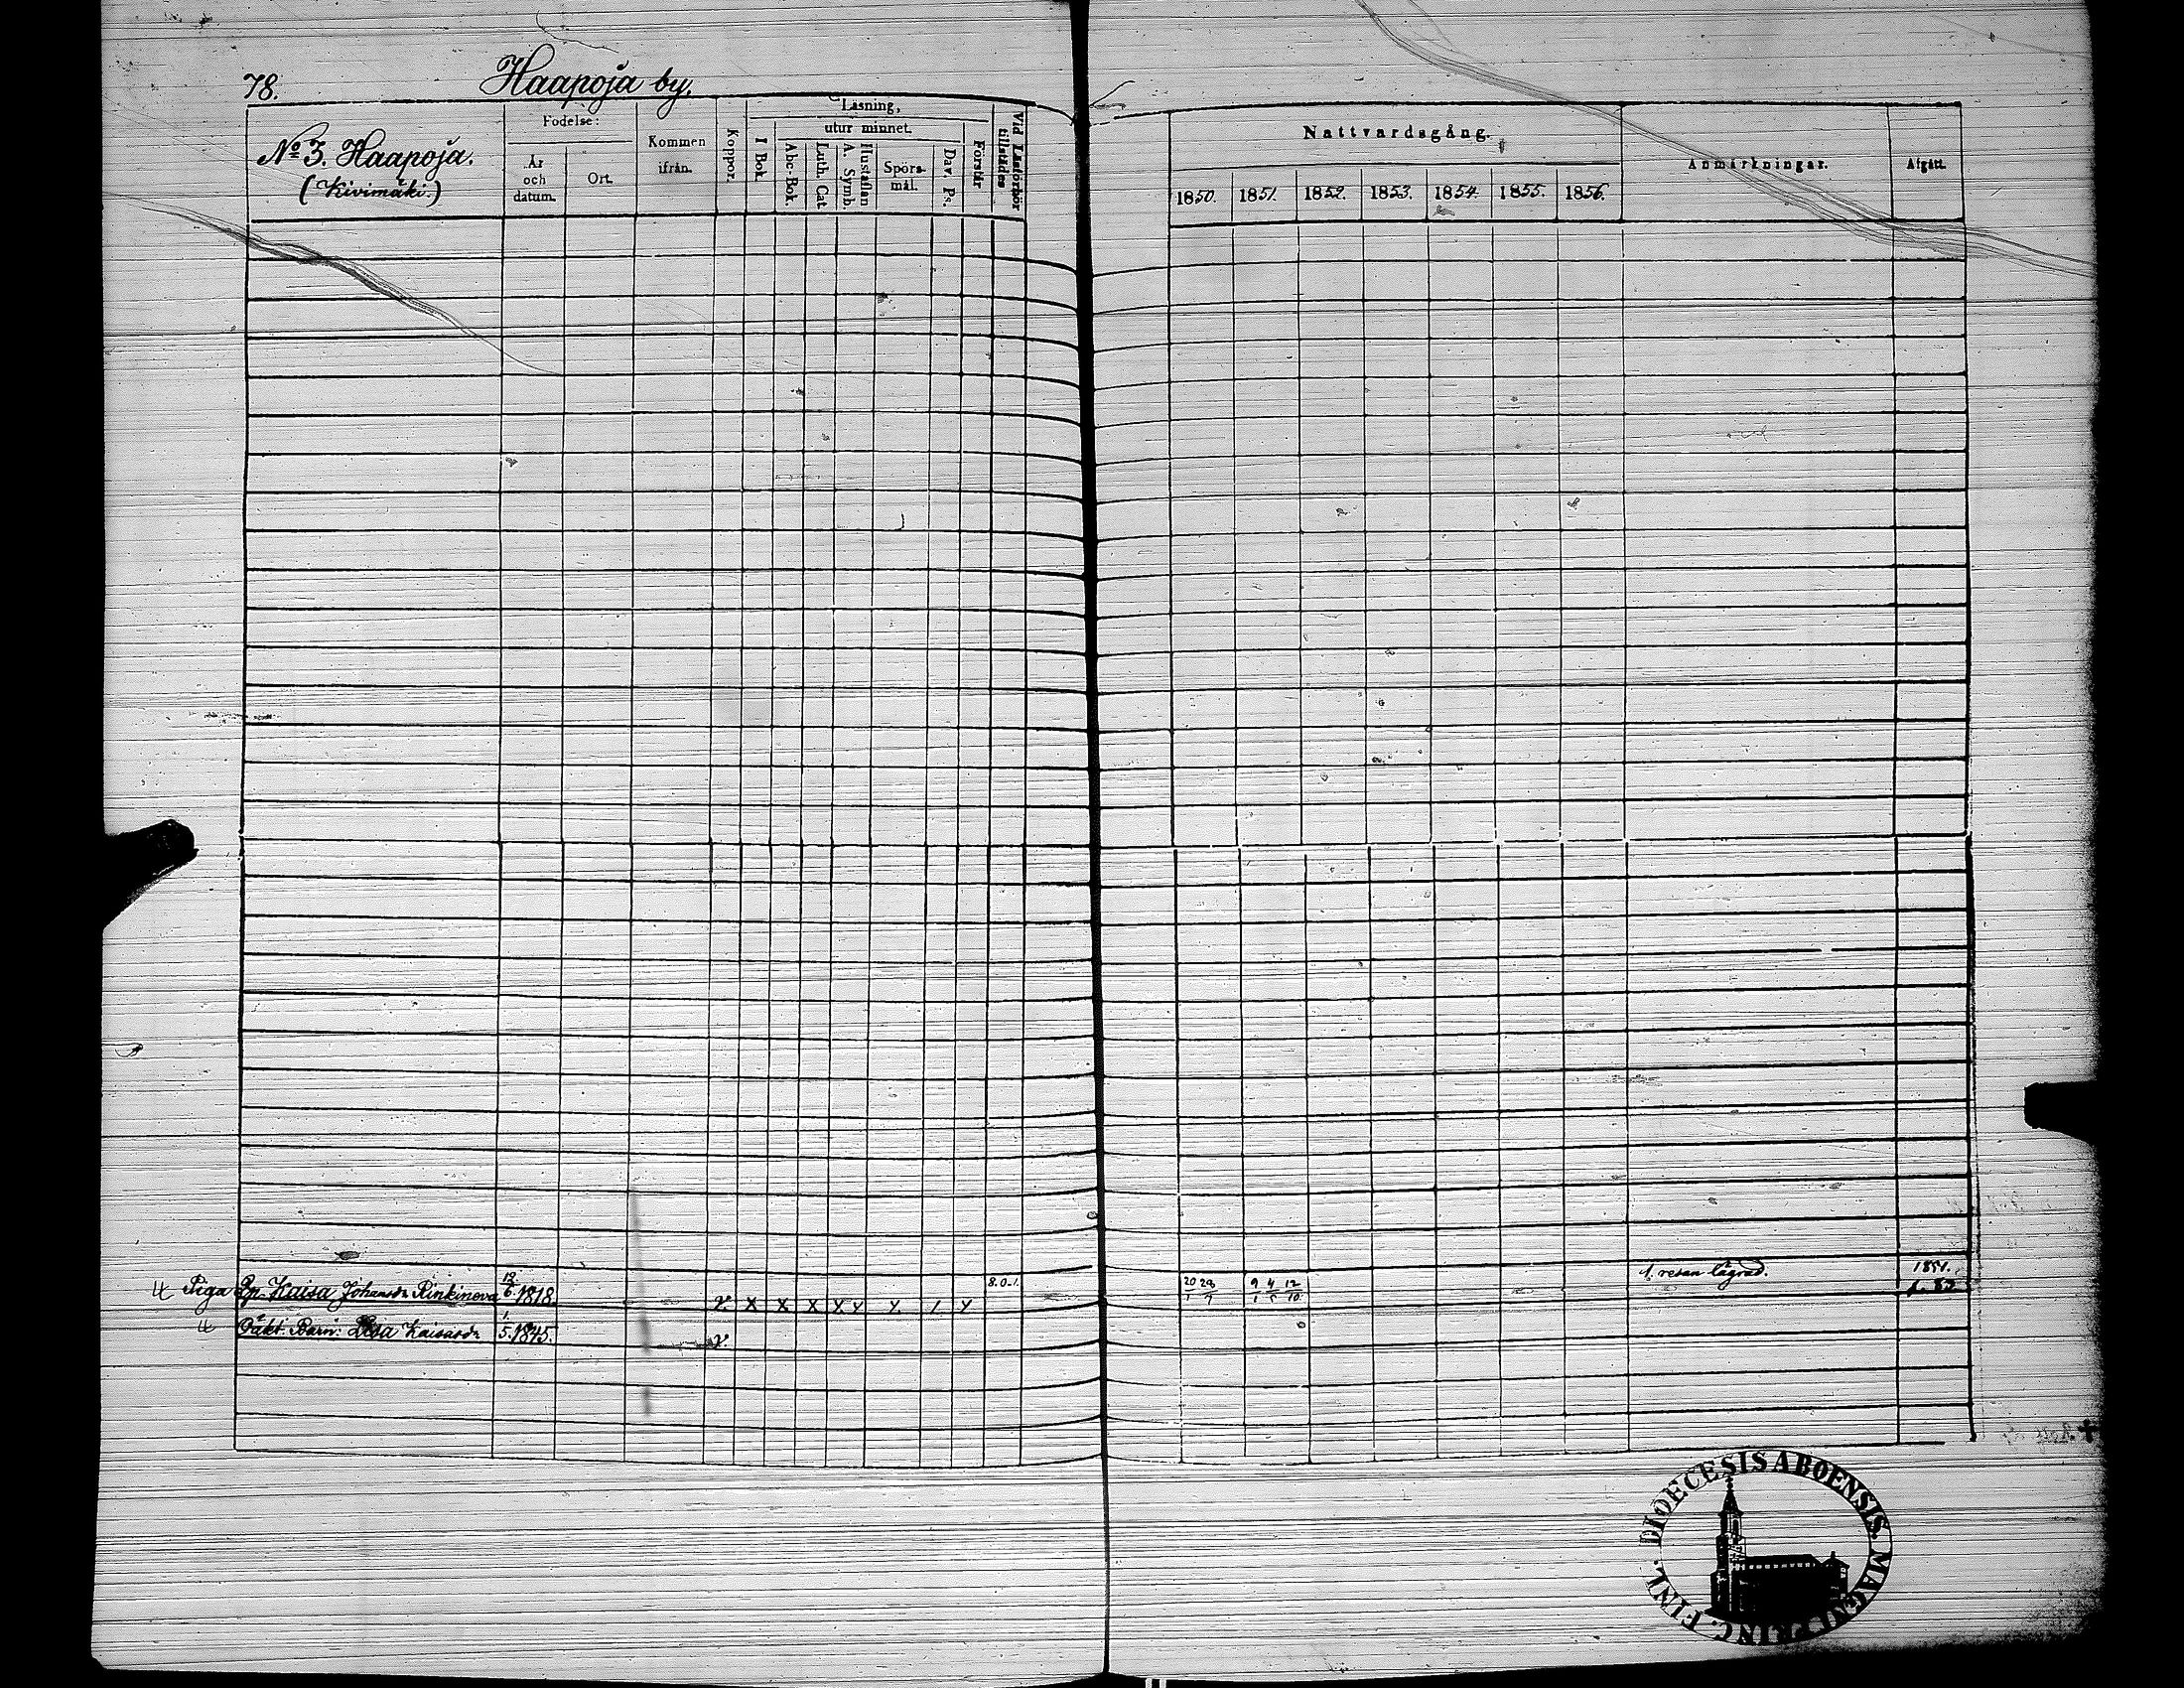 78.
Haapoja by.
No 3. Haapoja.
(Kivimäki.)
Födelse:
År och datum.
Ort.
Kommen ifrån.
Koppor.
Läsning,
I Bok.
utur minnet.
Abc-Bok
Luth. Cat
A. Symb.
Hustaflan
Spörsmål.
Dav. Ps.
Förstår
Vid Läsförhör tillstädes
Nattvardsgång.
1850. 1851. 1852. 1853. 1854. 1855. 1856.
Anmärkningar.
Afgått.
Piga Kaisa Johansdr Rinkineva 12/6 1818. v. x x x x y y. / y 8.0.1. 20/1 9/1 12/10 1. resan lägrad. 1851.
Oäkt. Barn: Lisa Kaisasdr 1/5 1845. v.
FINL. DIOECESIS ABOENSIS. MAGNI PRINC.